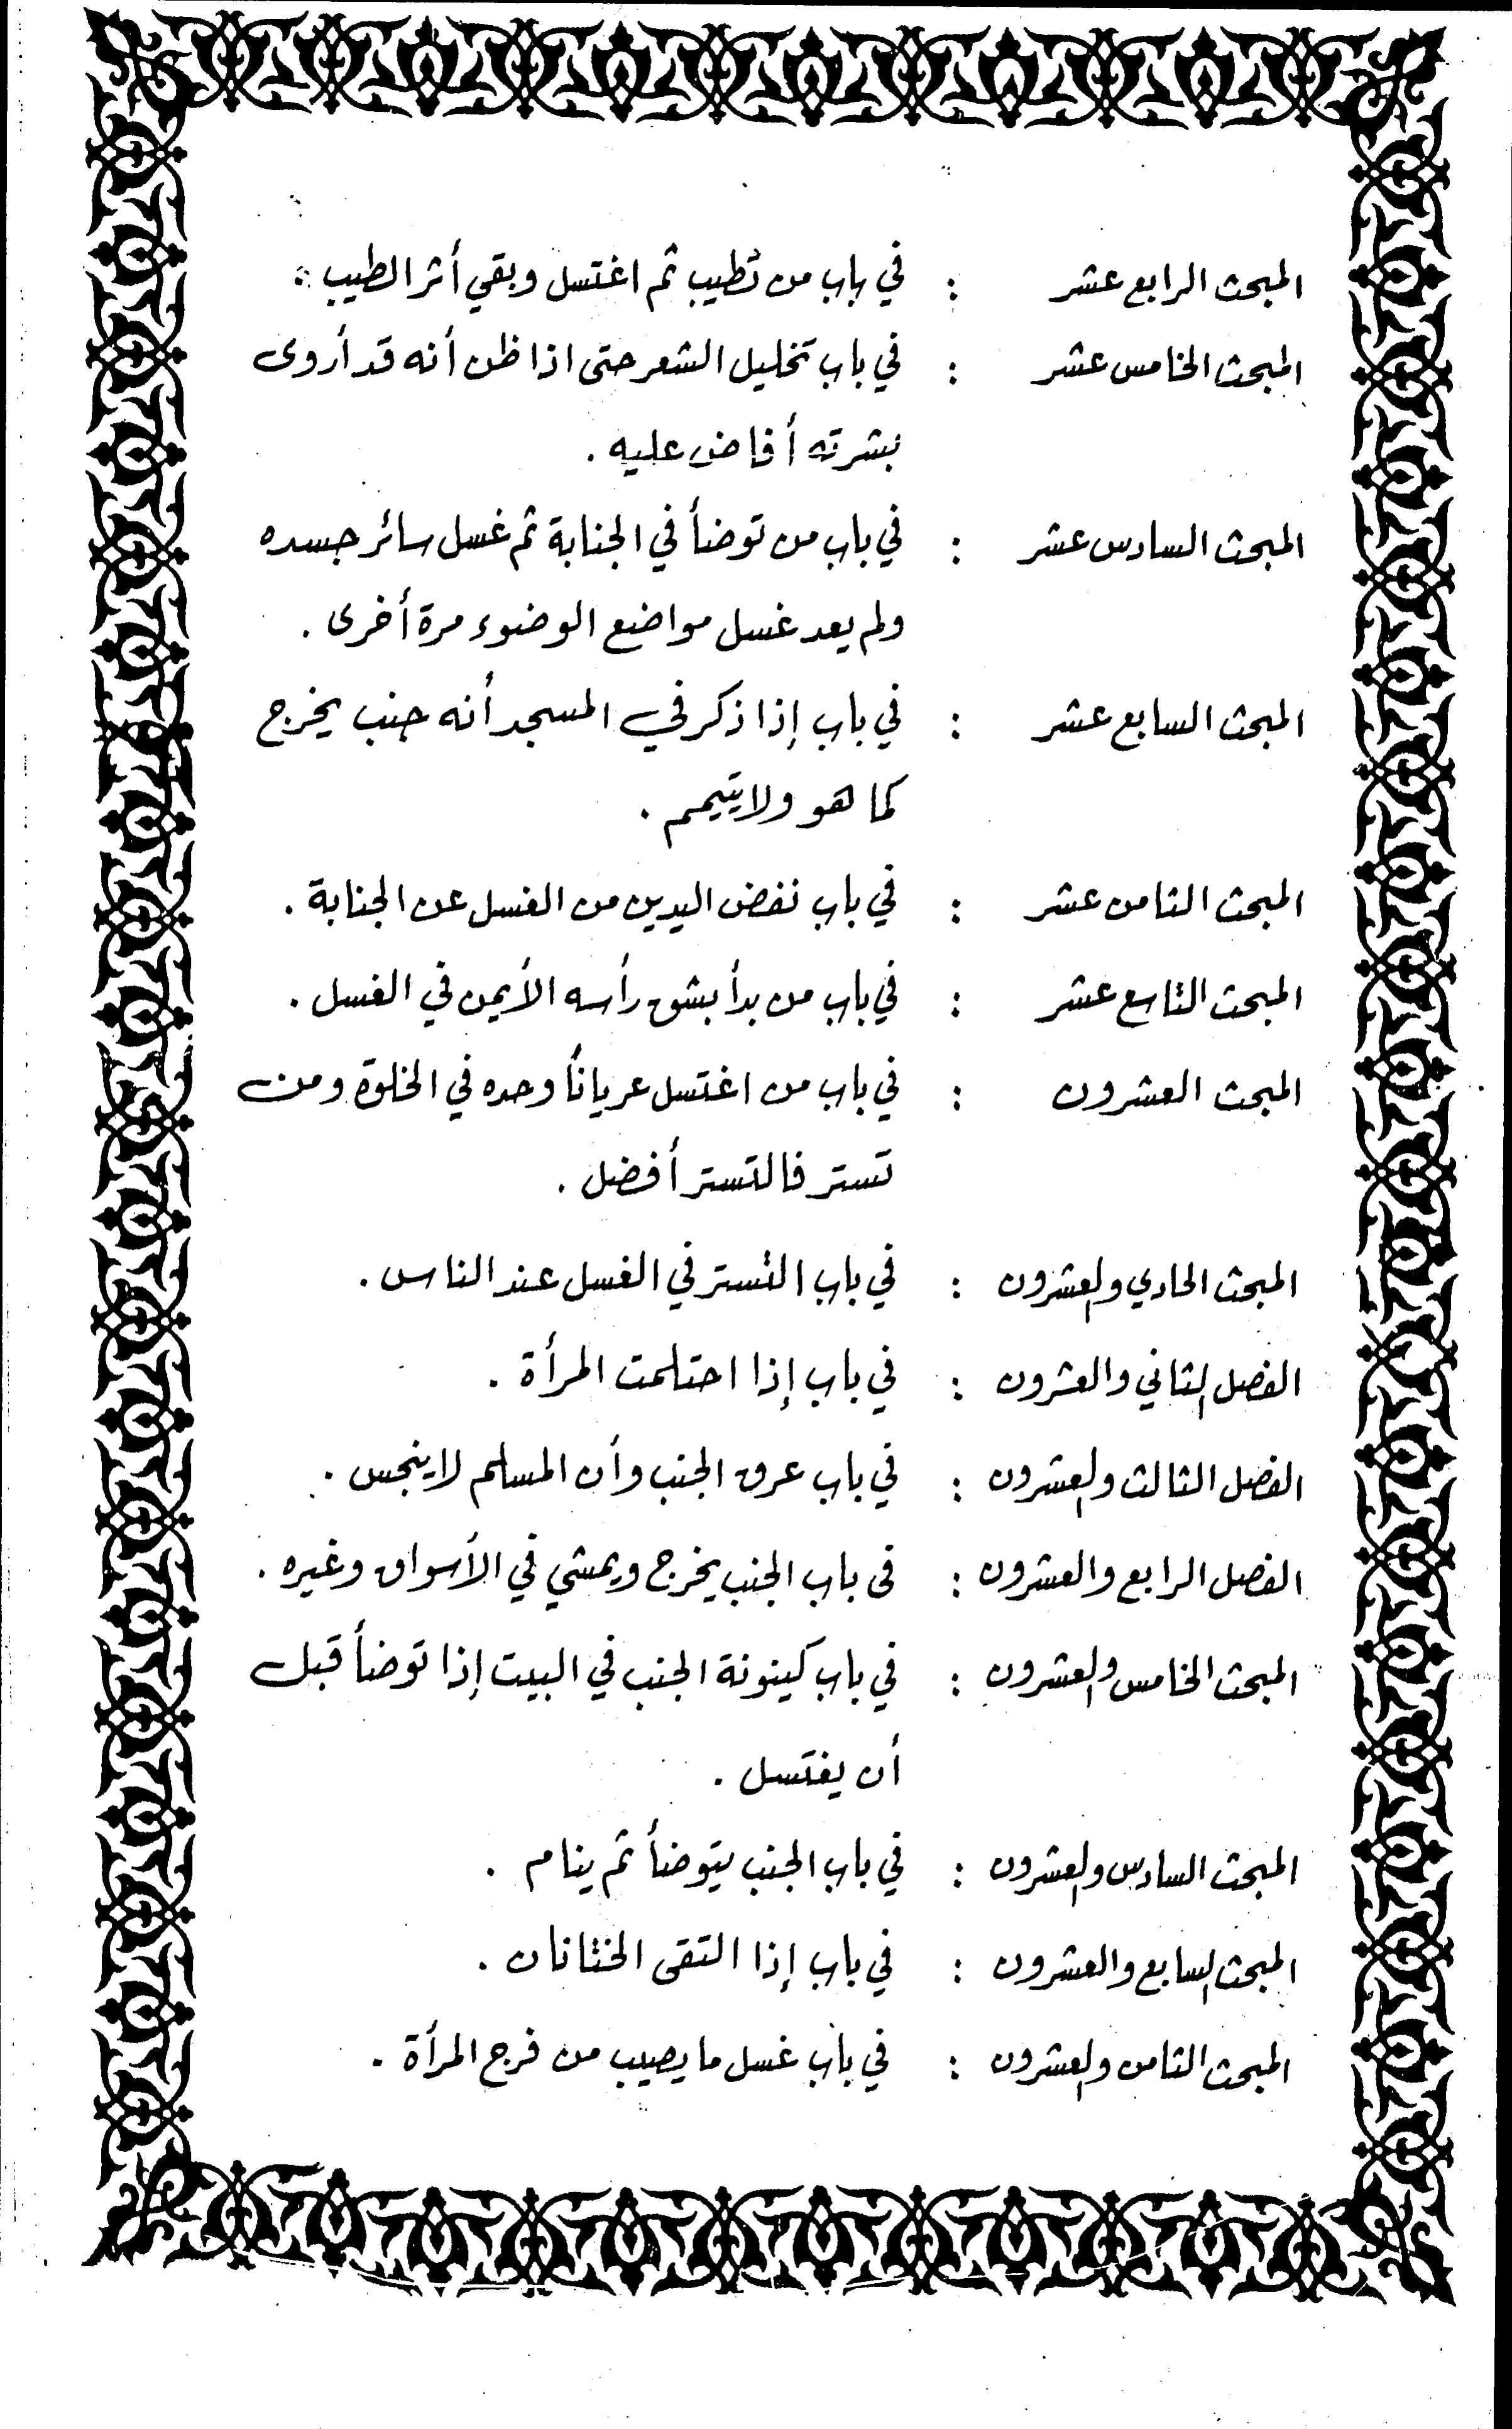 المبحث الرابع عشر : في باب من تطيب ثم اغتسل وبقي أثر الطيب .
المبحث الخامس عشر : في باب تخليل الشعر حتى اذا ظن أنه قد أروى
بشرته أفاض عليه .
المبحث السادس عشر : في باب من توضأ في الجنابة ثم غسل سائر جسده
ولم يعد غسل مواضع الوضوء مرة أخرى .
المبحث السابع عشر : في باب إذا ذكر في المسجد أنه جنب يخرج
كما هو ولا يتيمم .
المبحث الثامن عشر : في باب نفض اليدين من الغسل عن الجنابة .
المبحث التاسع عشر : في باب من بدأ بشق رأسه الأيمن في الغسل .
المبحث العشرون : في باب من اغتسل عرياناً وحده في الخلوة ومن
تستر فالتستر أفضل .
المبحث الحادي والعشرون : في باب التستر في الغسل عند الناس .
الفصل الثاني والعشرون : في باب إذا احتلمت المرأة .
الفصل الثالث والعشرون : في باب عرق الجنب وأن المسلم لا ينجس .
الفصل الرابع والعشرون : فى باب الجنب يخرج ويمشي في الأسواق وغيره .
المبحث الخامس والعشرون : في باب كينونة الجنب في البيت إذا توضأ قبل
أن يغتسل .
المبحث السادس والعشرون : في باب الجنب يتوضأ ثم ينام .
المبحث السابع والعشرون : في باب إذا التقى الختانان .
المبحث الثامن والعشرون : في باب غسل ما يصيب من فرج المرأة .